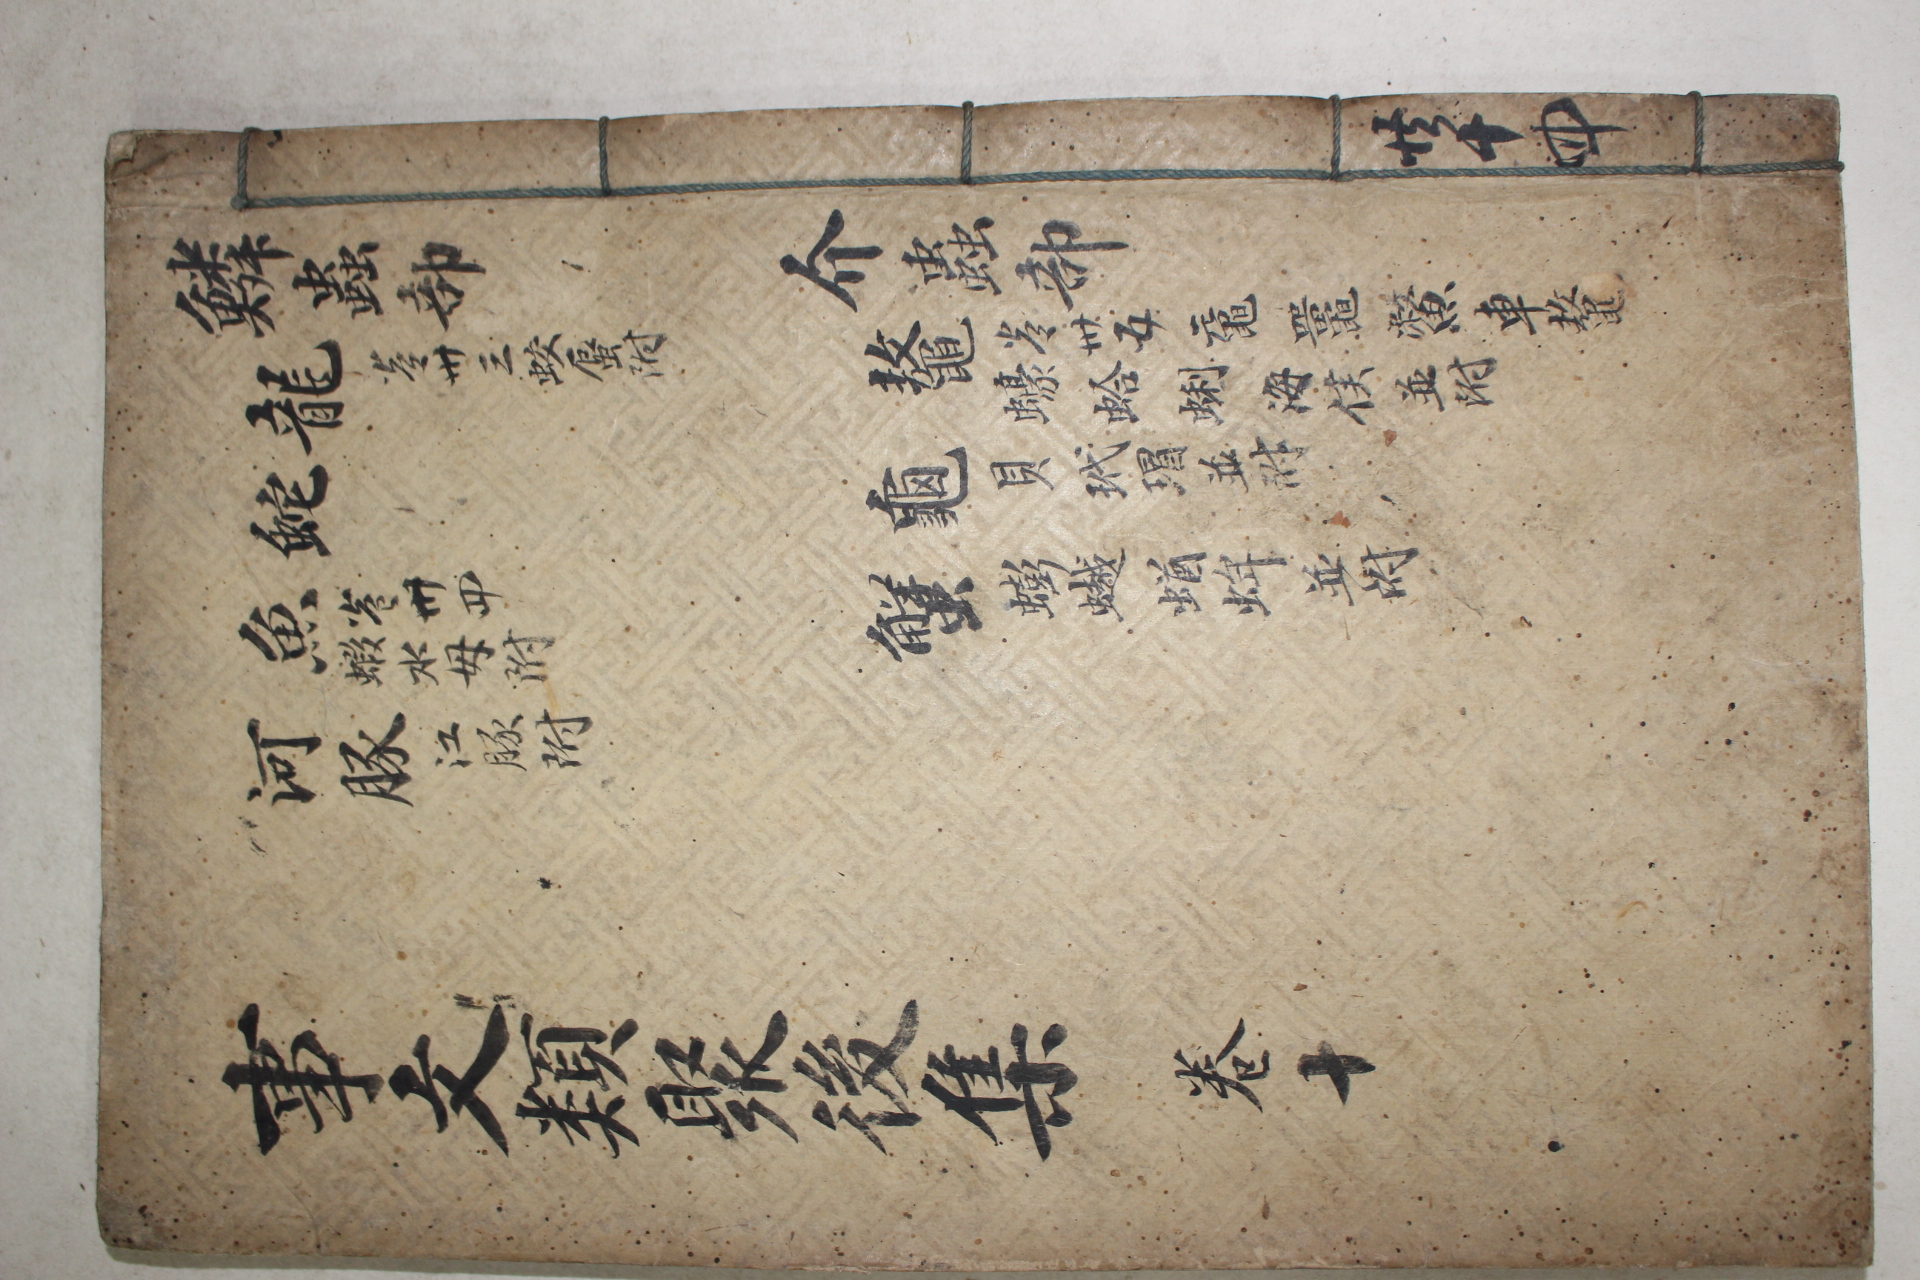 鱗蟲部
龍 卷卅三 蛟蜃附
蛇
魚 卷卅四
蝦水母附
河豚 江豚附
介蟲部
鼇 卷卅五 黿 鼉 鱉 車鼇
蠔蛤蜊海倿並附
龜 貝玳瑁並附
蟹 蟛蟚蝤蛑並附
事文類聚後集 卷十
共十四